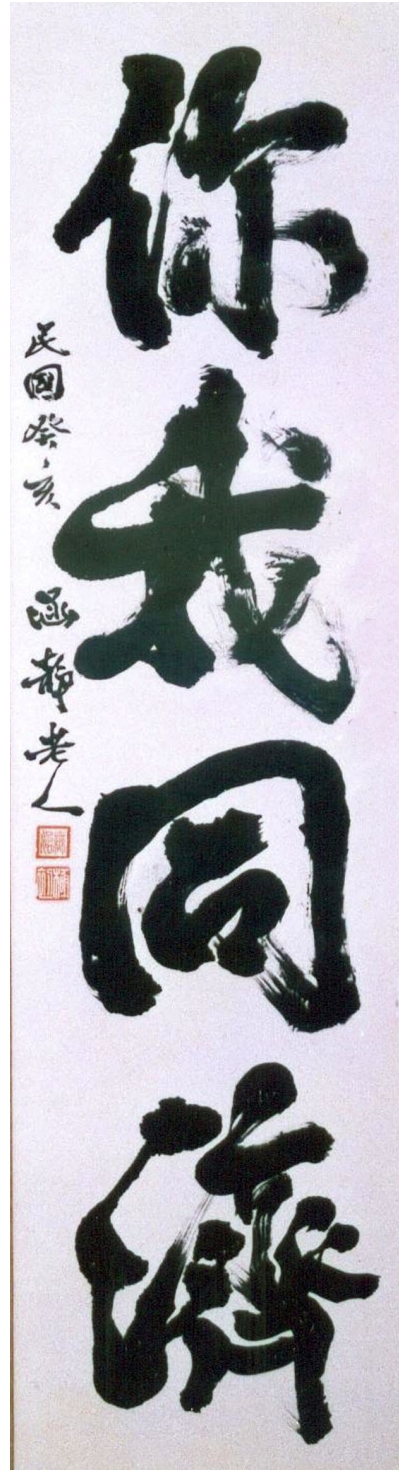 你我同濟
民國癸亥 涵靜老人